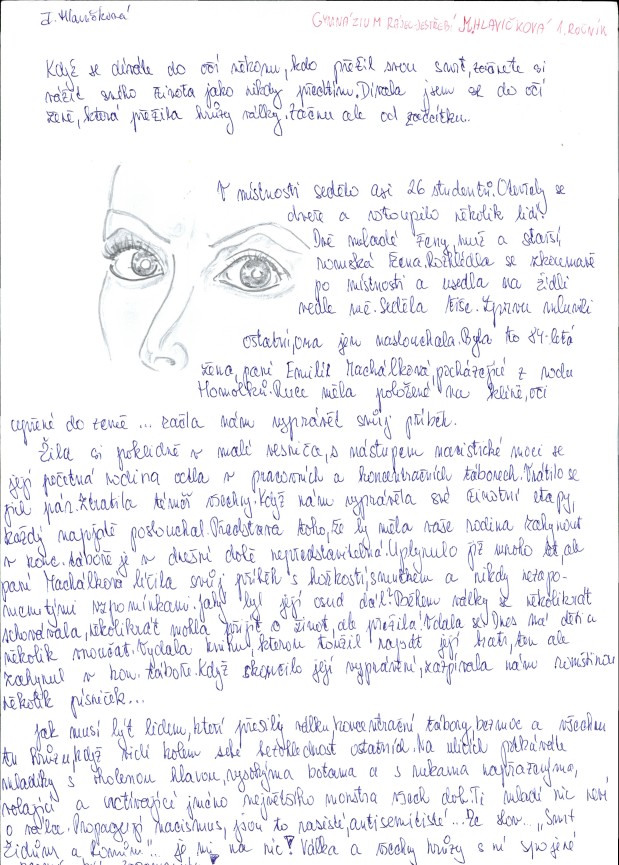 J. Hlavičková
GYMNÁZIUM RÁJEC-JESTŘEBÍ M.HLAVIČKOVÁ 1. ROČNÍK
Když se díváte do očí někomu, kdo přežil svou smrt, začnete si
vážit svého života jako nikdy předtím. Dívala jsem se do očí
ženě, která přežila hrůzy války. Začnu ale od začátku.
V místnosti sedělo asi 26 studentů. Otevřely se
dveře a vstoupilo několik lidí.
Dvě mladé ženy, muž a starší,
romská žena. Rozhlédla se zkoumavě
po místnosti a usedla na židli
vedle mě. Seděla tiše. Zprvu mluvili
ostatní, ona jen naslouchala. Byla to 84-letá
žena, paní Emilie Machálková, pocházející z rodu
Holomků. Ruce měla položené na klíně, oči
upřené do země ... začla nám vyprávět svůj příběh.
Žila si poklidně v malé vesnici, s nástupem nacistické moci se
její početná rodina octla v pracovních a koncentračních táborech. Vrátilo se
jich pár. Ztratila téměř všechny. Když nám vyprávěla své životní etapy,
každý napjatě poslouchal. Představa toho, že by měla vaše rodina zahynout
v konc. táboře je v dnešní době nepředstavitelná. Uplynulo již mnoho let, ale
paní Machálková líčila svůj příběh s hořkostí, smutkem a nikdy nezapo-
menutými vzpomínkami. Jaký byl její osud dál? Během války se několikrát
schovávala, několikrát mohla přijít o život, ale přežila! Vdala se. Dnes má děti a
několik vnoučat. Vydala knihu, kterou toužil napsat její bratr, ten ale
zahynul v kon. táboře. Když skončilo její vyprávění, zazpívala nám romštinou
několik písniček...
Jak musí být lidem, kteří přežili válku, koncentrační tábory, bezmoc a všechnu
tu hrůzu, když vidí kolem sebe bezohlednost ostatních. Na ulicích potkáváte
mladíky s oholenou hlavou, vysokýma botama a s rukama napřaženýma,
volající a uctívající jméno největšího monstra všech dob. Ti mladí nic neví
o válce. Propagují nacismus, jsou to rasisté, antisemitisté... Ze slov... „Smrt
židům a komoušům"... je mi na nic! Válka a všechny hrůzy s ní spojené